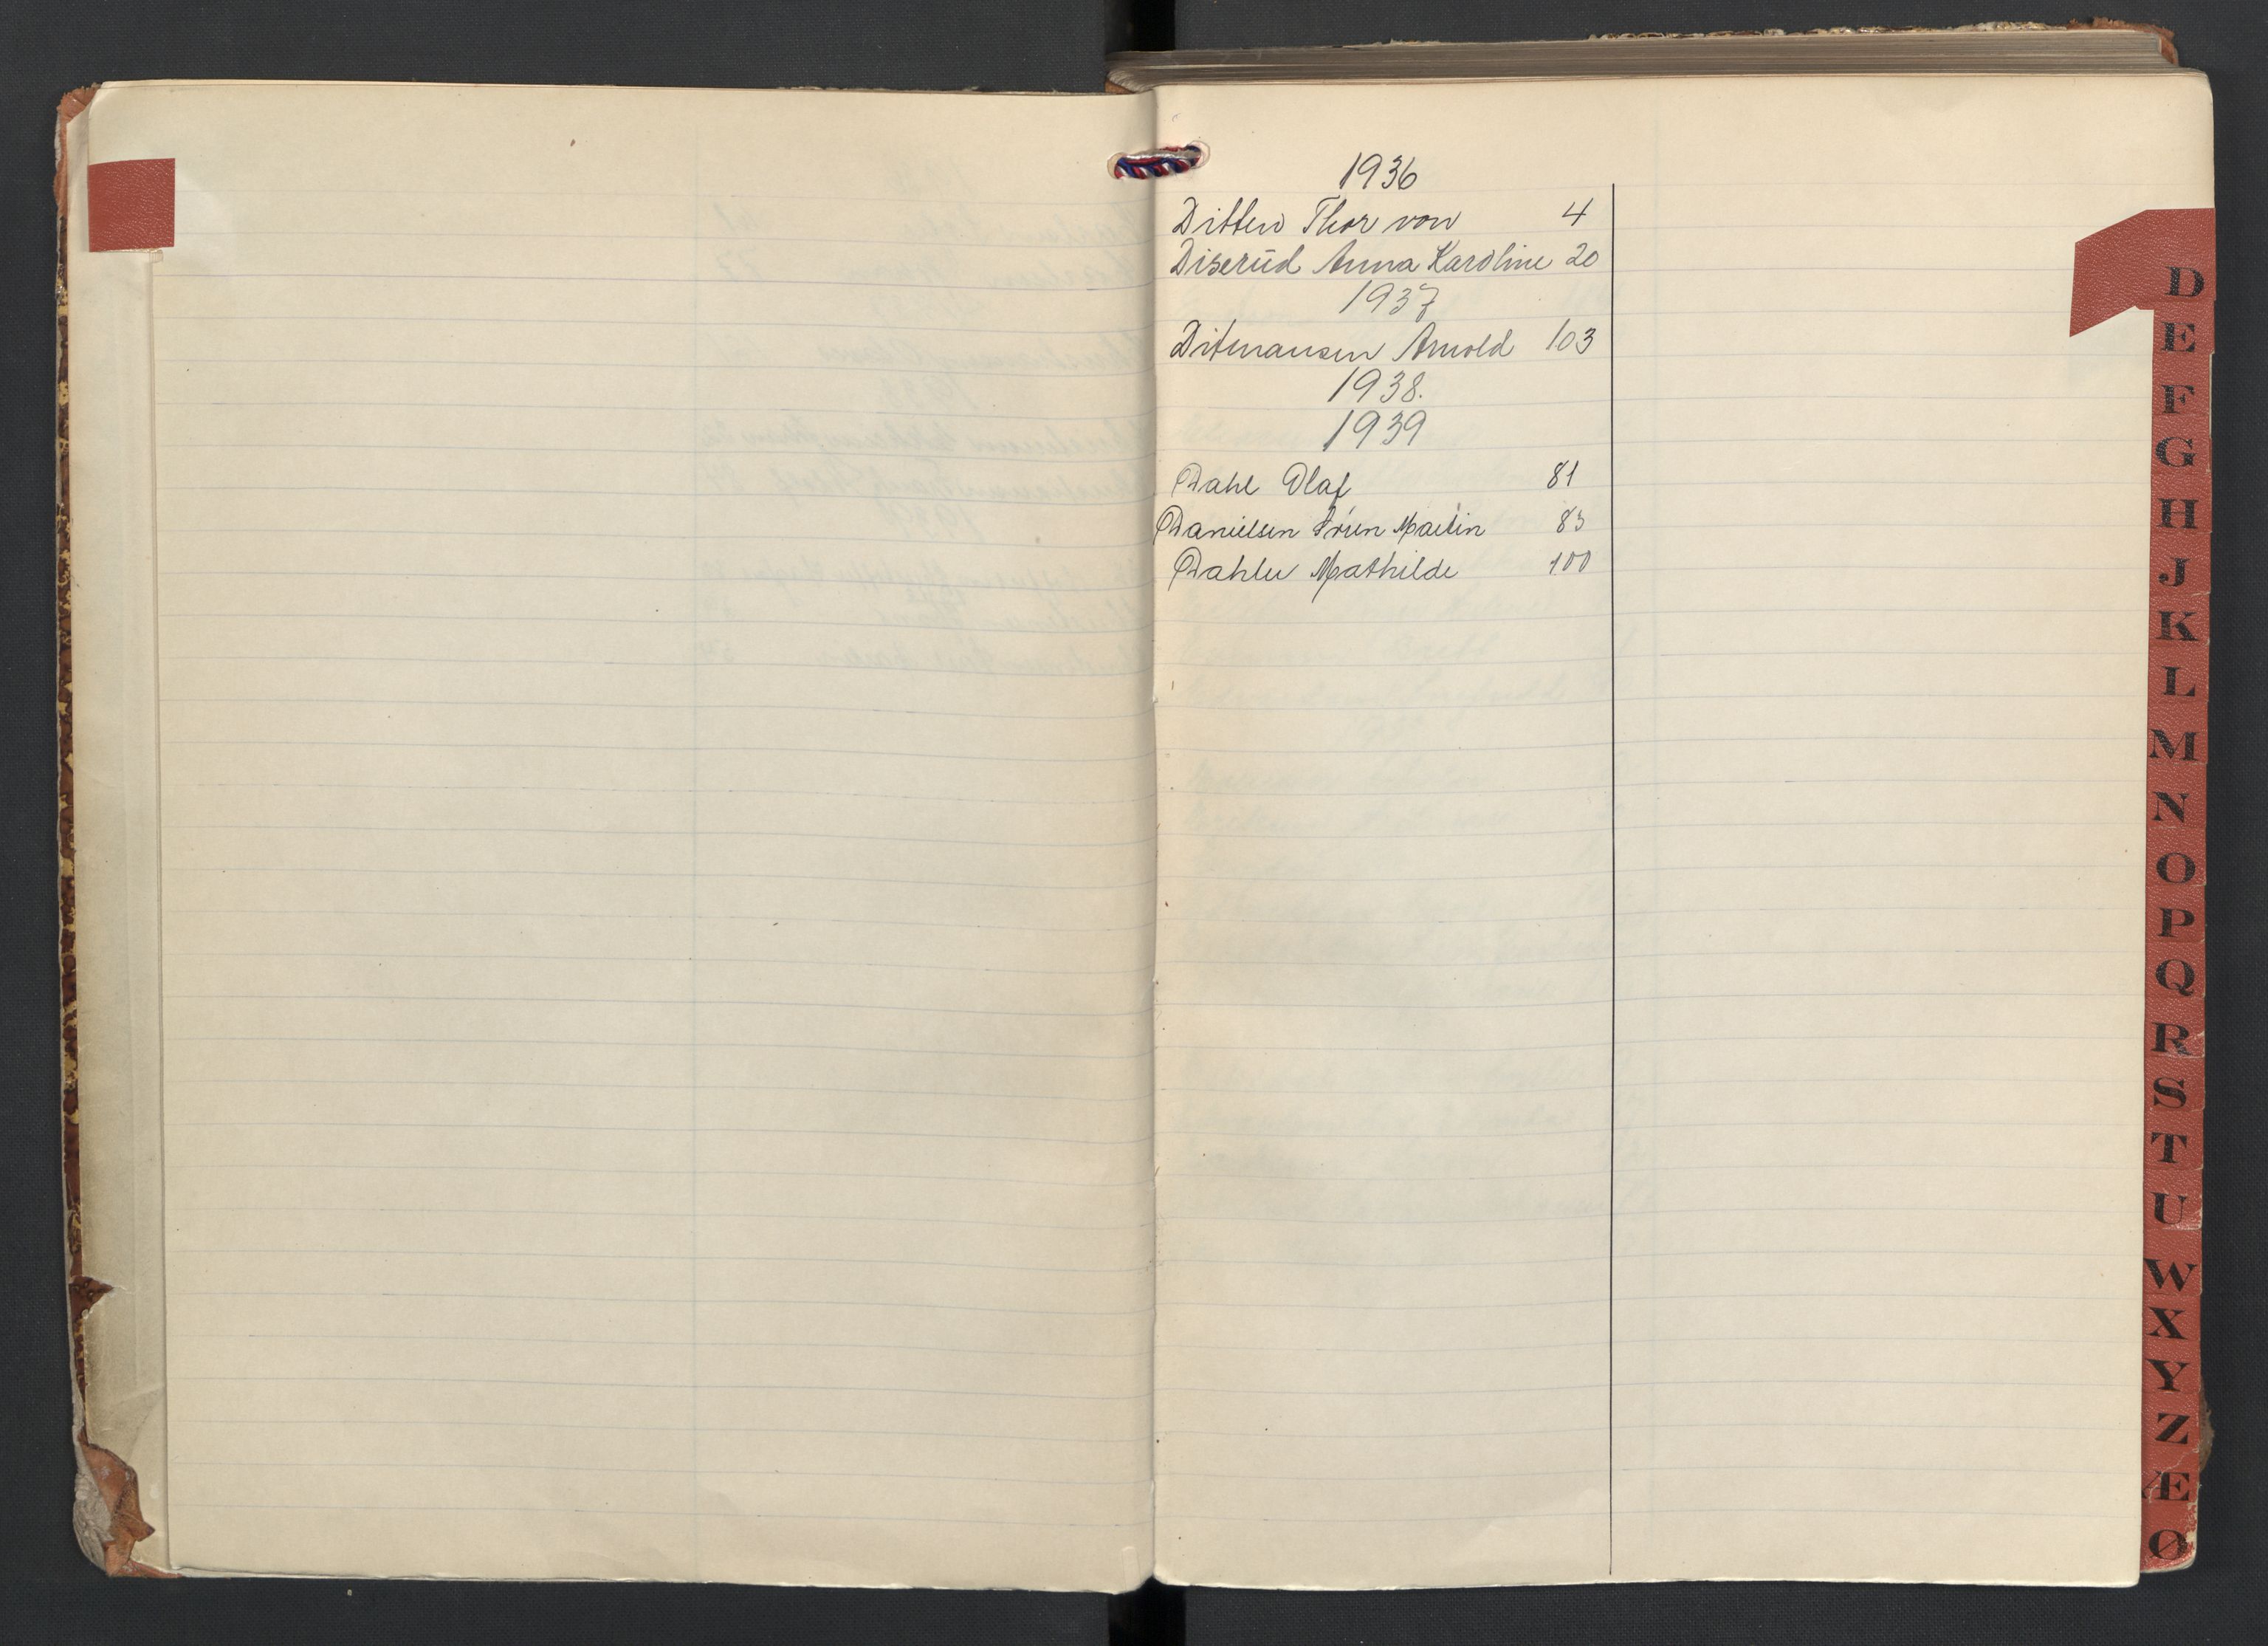 1936
Ditten Thor von 4
Diserud Anna Karoline 20
1937
Ditmansen Arnold 103
1938.
1939
Dahl Olaf 81
Danielsen Martin 83
Dahler Mathilde 100
D
E
F
G
H
J
K
L
M
N
O
P
Q
R
S
T
U
W
X
Y
Z
Æ
Ø